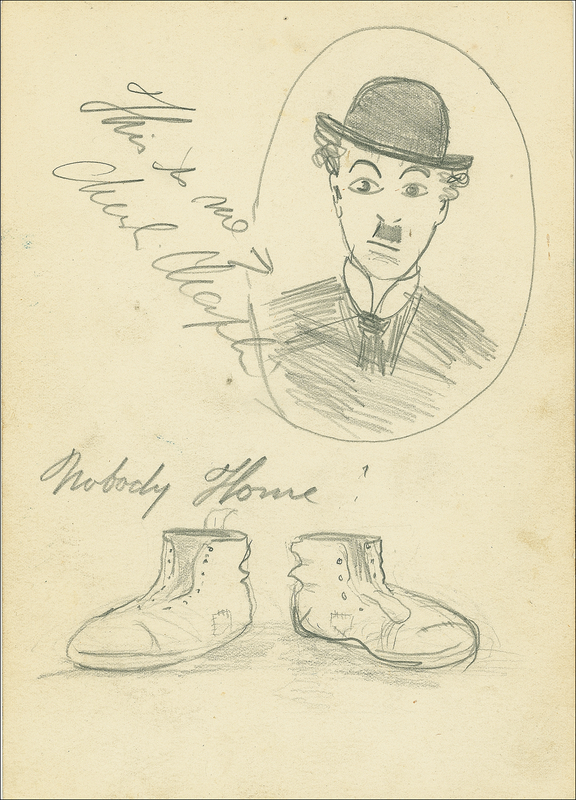 This is me
Charlie Chaplin
Nobody Home !